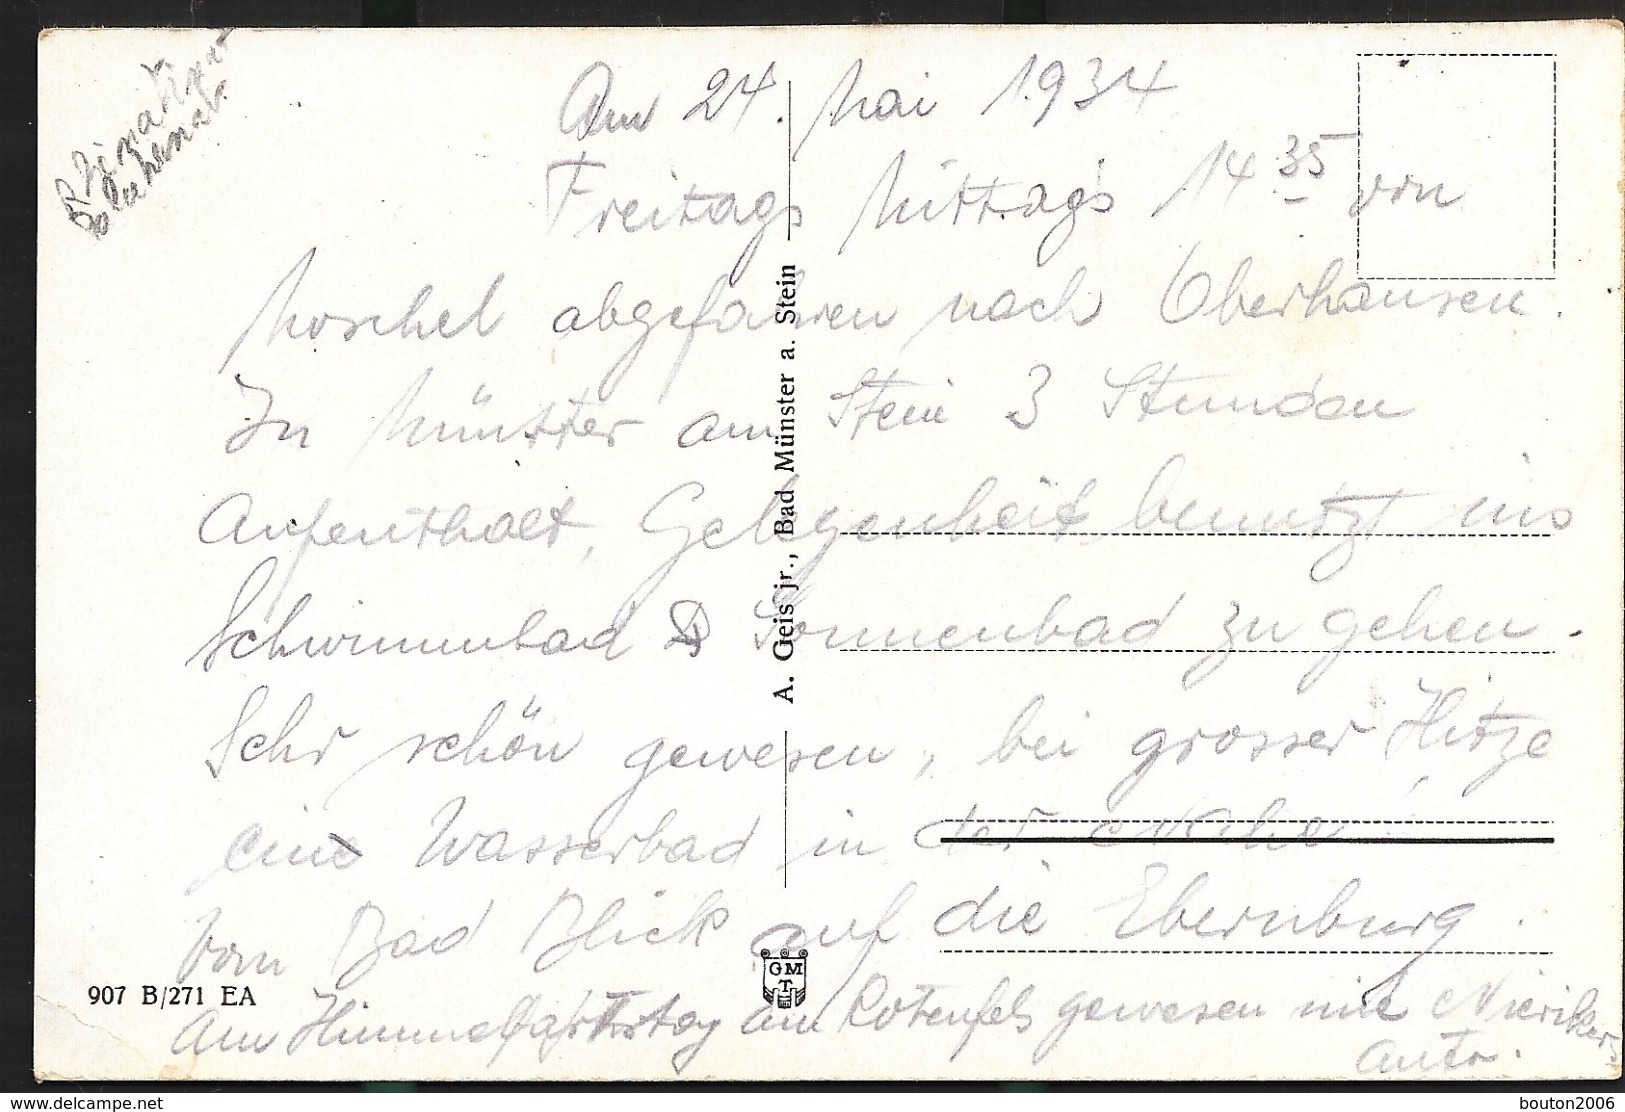 Am 24. Mai 1934
Freitags Mittags 14 35 von
Moschel abgefahren nach Oberhausen.
In Münster am Stein 3 Stunden
Aufenthalt, Gelegenheit benutzt ins
Schwimmbad Sonnenbad zu gehen.
Sehr schön gewesen, bei grosser Hitze
ein Wasserbad in der Nahe
Vom Bad Blick auf die Ebernburg.
Am Himmelfahrtstag am Rotenfels gewesen mit
Auto.
A. Geis jr., Bad Münster a. Stein
GMT
907 B/271 EA
https://www.delcampe.net
bouton2006